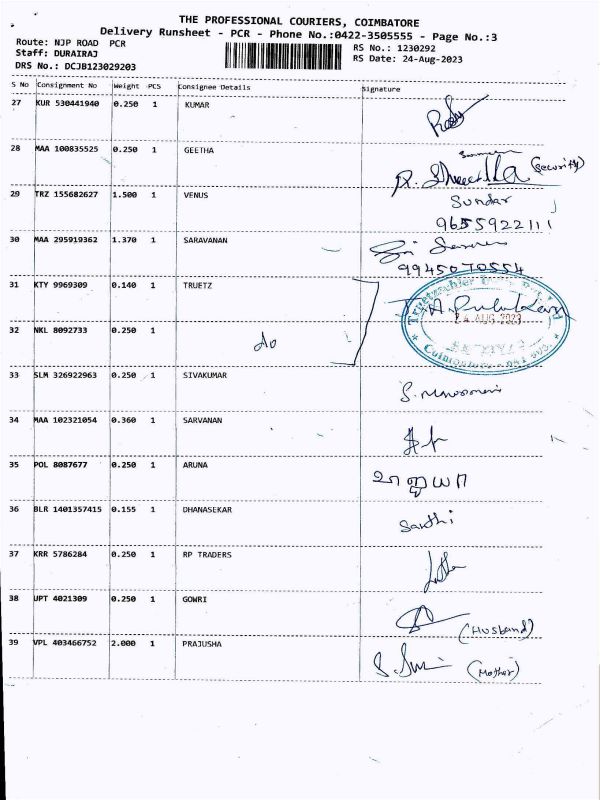 THE PROFESSIONAL COURIERS, COIMBATORE
Delivery Runsheet - PCR - Phone No.:0422-3505555 - Page No.:3
Route: NJP ROAD PCR
RS No.: 1230292
Staff: DURAIRAJ
RS Date: 24-Aug-2023
DRS No.: DCJB123029203
S No Consignment No Weight PCS Consignee Details Signature
27 KUR 530441940 0.250 1 KUMAR
28 MAA 100835525 0.250 1 GEETHA
(Security)
29 TRZ 155682627 1.500 1 VENUS Sundar
9655922111
30 MAA 295919362 1.370 1 SARAVANAN
9945070554
31 KTY 9969309 0.140 1 TRUETZ
24 AUG 2023
32 NKL 8092733 0.250 1 do
33 SLM 326922963 0.250 1 SIVAKUMAR
34 MAA 102321054 0.360 1 SARVANAN
35 POL 8087677 0.250 1 ARUNA
36 BLR 1401357415 0.155 1 DHANASEKAR
Santhi
37 KRR 5786284 0.250 1 RP TRADERS
38 UPT 4021309 0.250 1 GOWRI
(Husband)
39 VPL 403466752 2.000 1 PRAJUSHA
(Mother)